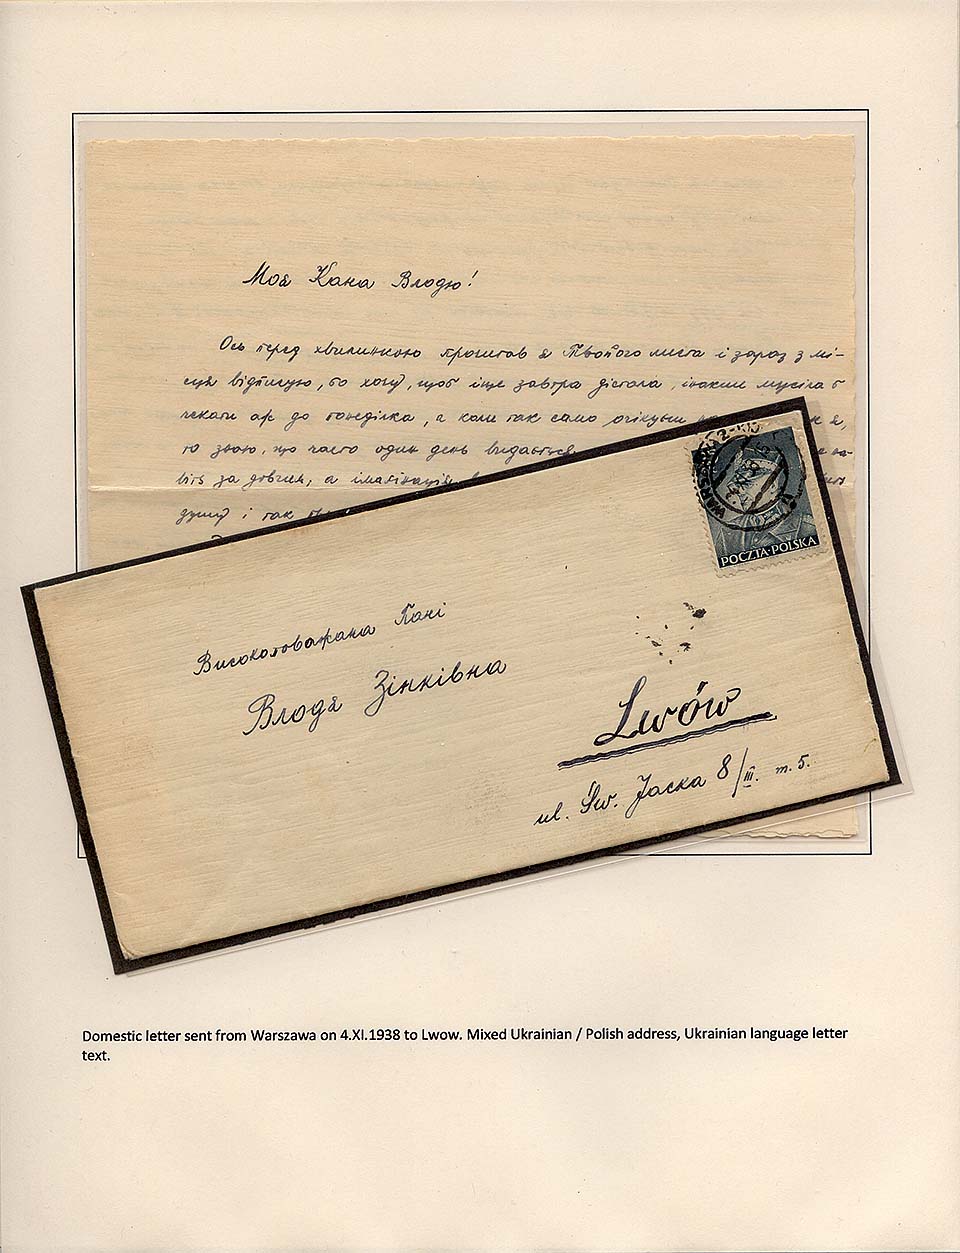 Моє Кана Владю!
Ось перед хвилинкою прочитав я Твойого листа і зараз з мі-
сця відписую, бо хочу, щоб іще завтра дістала, інакше мусіла б
чекати аж до понеділка, а коли так само очікуєш я,
то знаю, що часто один день видається на-
віть за довгим, а імагінація
душу і так
WARSZAWA 2
POCZTA·POLSKA
Високоповажана Пані
Влодя Зінківна
Lwów
ul. Św. Jacka 8/III. m. 5.
Domestic letter sent from Warszawa on 4.XI.1938 to Lwow. Mixed Ukrainian / Polish address, Ukrainian language letter
text.